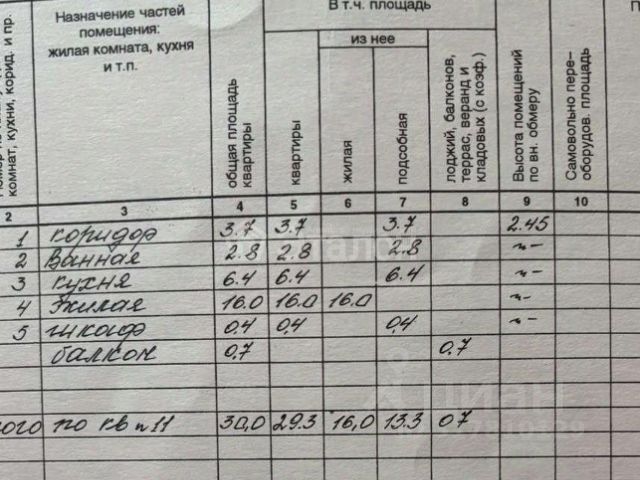 Назначение частей помещения: жилая комната, кухня и т.п.
комнат, кухни, корид. и пр.
В т.ч. площадь
из нее
общая площадь квартиры
квартиры
жилая
подсобная
лоджий, балконов, террас, веранд и кладовых (с коэф.)
Высота помещений по вн. обмеру
Самовольно пере- оборудов. площадь
2 3 4 5 6 7 8 9 10
1 коридор 3.7 3.7 3.7 2.45
2 Ванная 2.8 2.8 2.8 -"-
3 кухня 6.4 6.4 6.4 -"-
4 Жилая 16.0 16.0 16.0 -"-
5 шкаф 0,4 0,4 0,4 -"-
балкон 0,7 0.7
ого по кв п 11 30,0 29.3 16,0 13.3 07